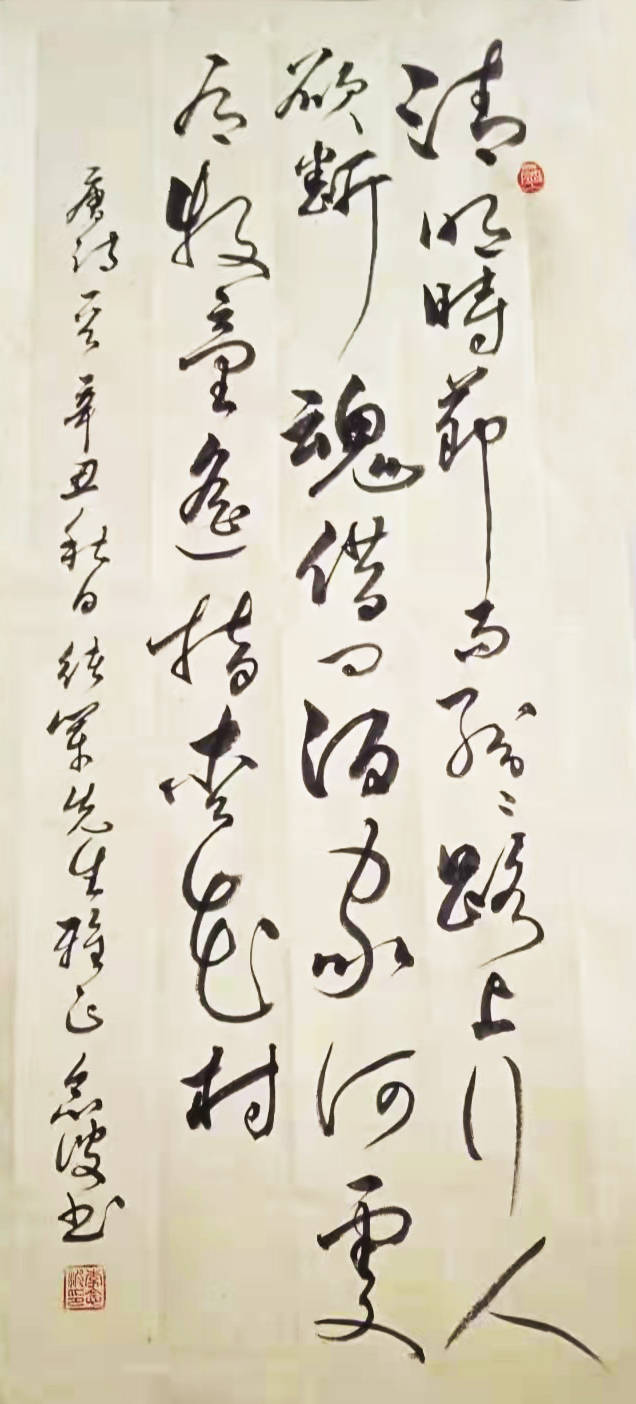 清明時節雨紛〻路上行人
欲斷魂借問酒家何處
有牧童遙指杏花村
唐詩一首辛丑秋日先生雅正波書